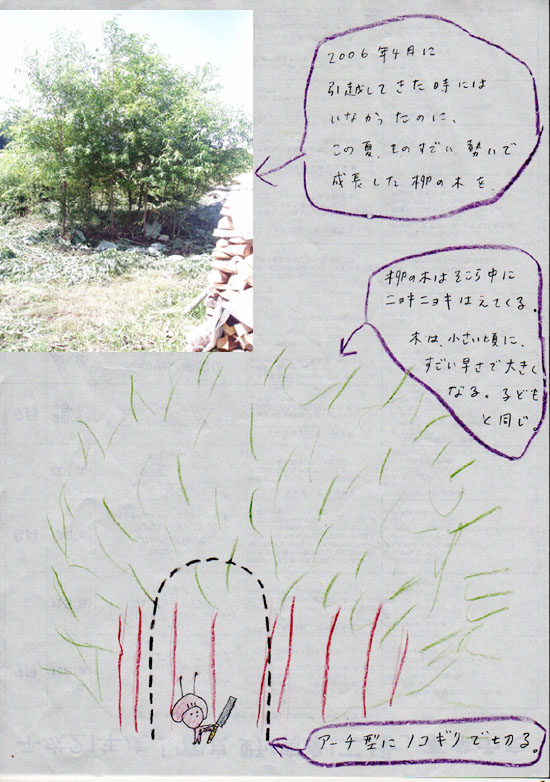 2006年4月に
引越してきた時には
いなかったのに、
この夏、ものすごい勢いで
成長した柳の木を、
柳の木はそこら中に
ニョキニョキはえてくる。
木は、小さい頃に、
すごい早さで大きく
なる。子ども
と同じ。
アーチ型にノコギリで切る。